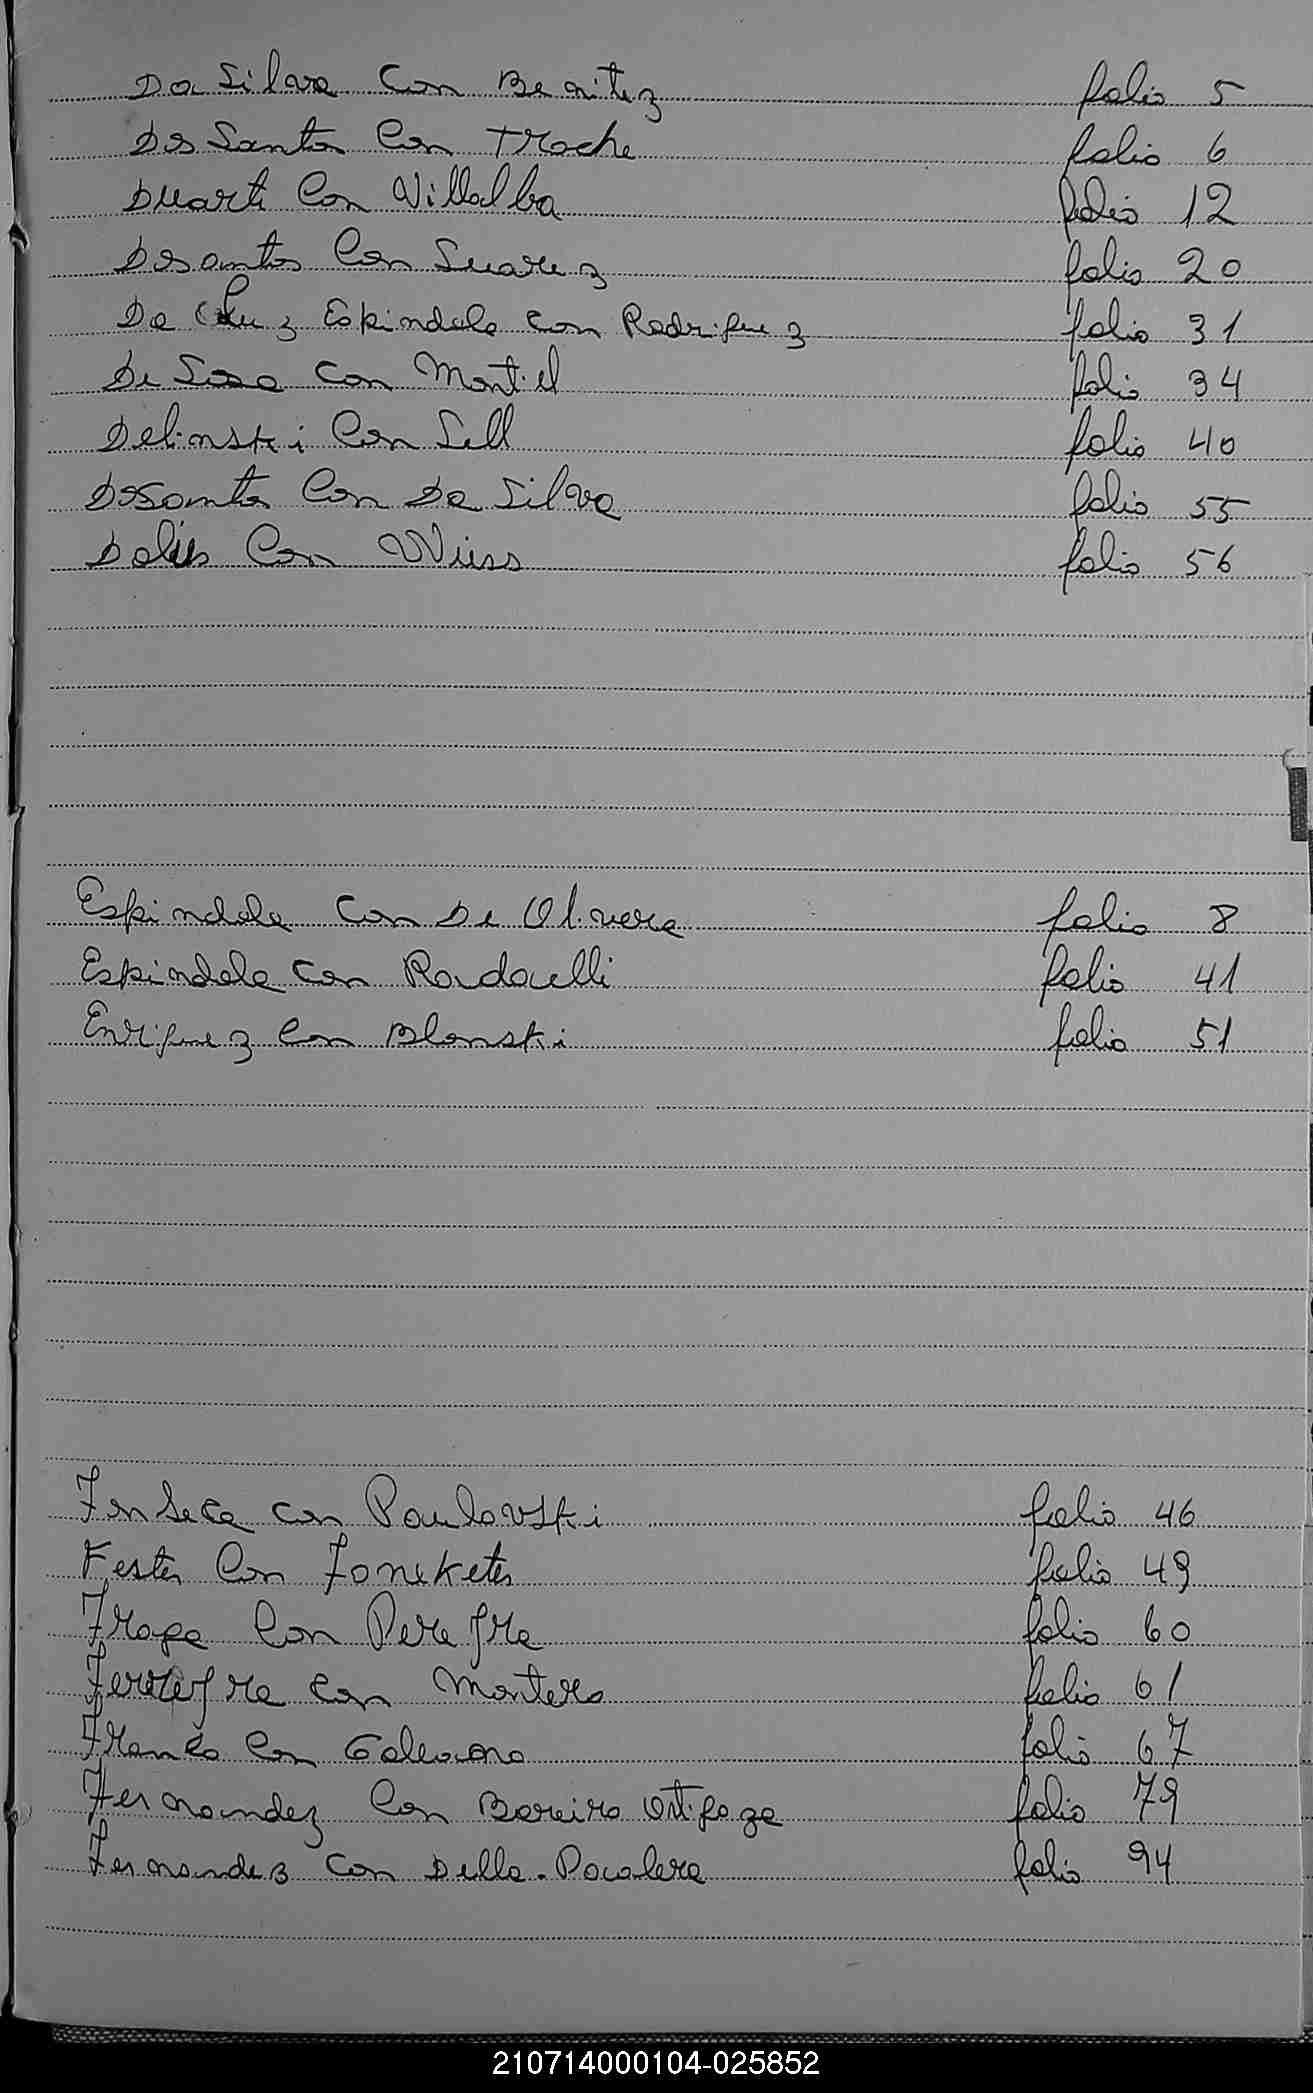 Da Silva Con Benitez folio 5
Dos Santos Con Troche folio 6
Duarte Con Villalba folio 12
Dosantos Con Suarez folio 20
Da Cruz Espindola con Rodriguez folio 31
De Sosa con Montiel folio 34
Delinski Con Sell folio 40
Dosantos Con Da Silva folio 55
Con folio 56
Espindola Con De Olivera folio 8
Espindola con folio 41
Enriquez Con Blonski folio 51
Fonseca con Paulovski folio 46
Con folio 49
Fraga Con Pereyra folio 60
Ferreyra con Montero folio 61
Franco Con Galeano folio 67
Fernandez Con Bareiro Ortigoza folio 79
Fernandez Con Della-Pocalera folio 94
210714000104-025852